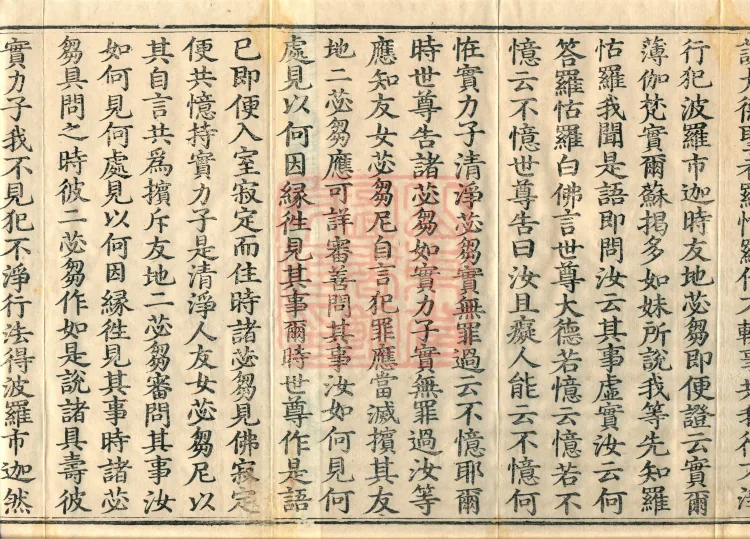 行犯波羅市迦時友地苾芻即便證云實爾
薄伽梵實爾蘇揭多如妹所說我等先知羅
怙羅我聞是語即問汝云其事虛實汝云何
答羅怙羅白佛言世尊大德若憶云憶若不
憶云不憶世尊告曰汝且癡人能云不憶何
恠實力子清淨苾芻實無罪過云不憶耶爾
時世尊告諸苾芻如實力子實無罪過汝等
應知友女苾芻尼自言犯罪應當滅擯其友
地二苾芻應可詳審善問其事汝如何見何
處見以何因緣徃見其事爾時世尊作是語
已即便入室寂定而住時諸苾芻見佛寂定
便共憶持實力子是清淨人友女苾芻尼以
其自言共為擯斥友地二苾芻審問其事汝
如何見何處見以何因緣徃見其事時諸苾
芻具問之時彼二苾芻作如是說諸具壽彼
實力子我不見犯不淨行法得波羅市迦然